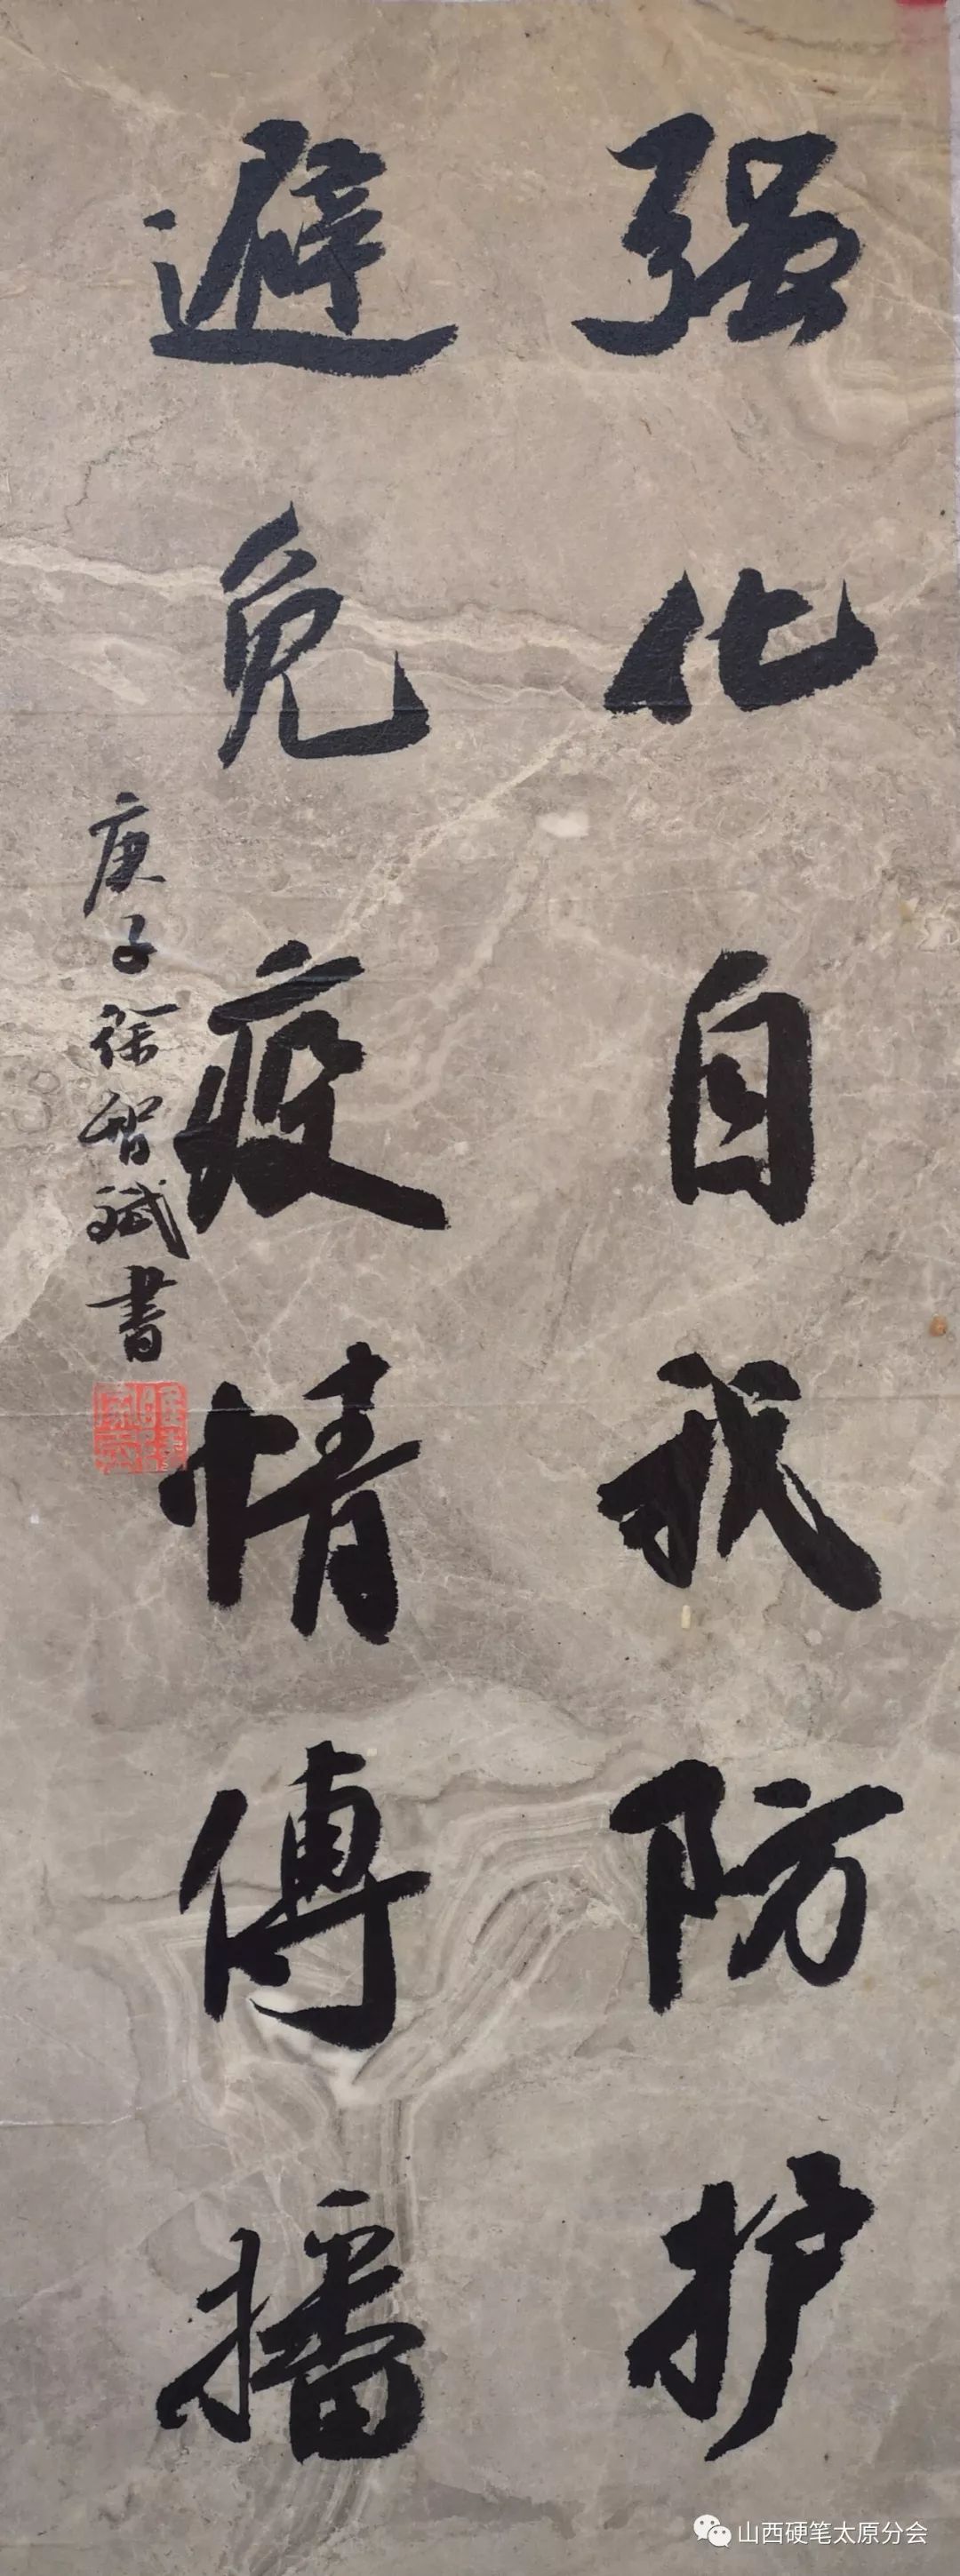 强化自我防护
避免疫情傳播
庚子徐智斌書
山西硬笔太原分会